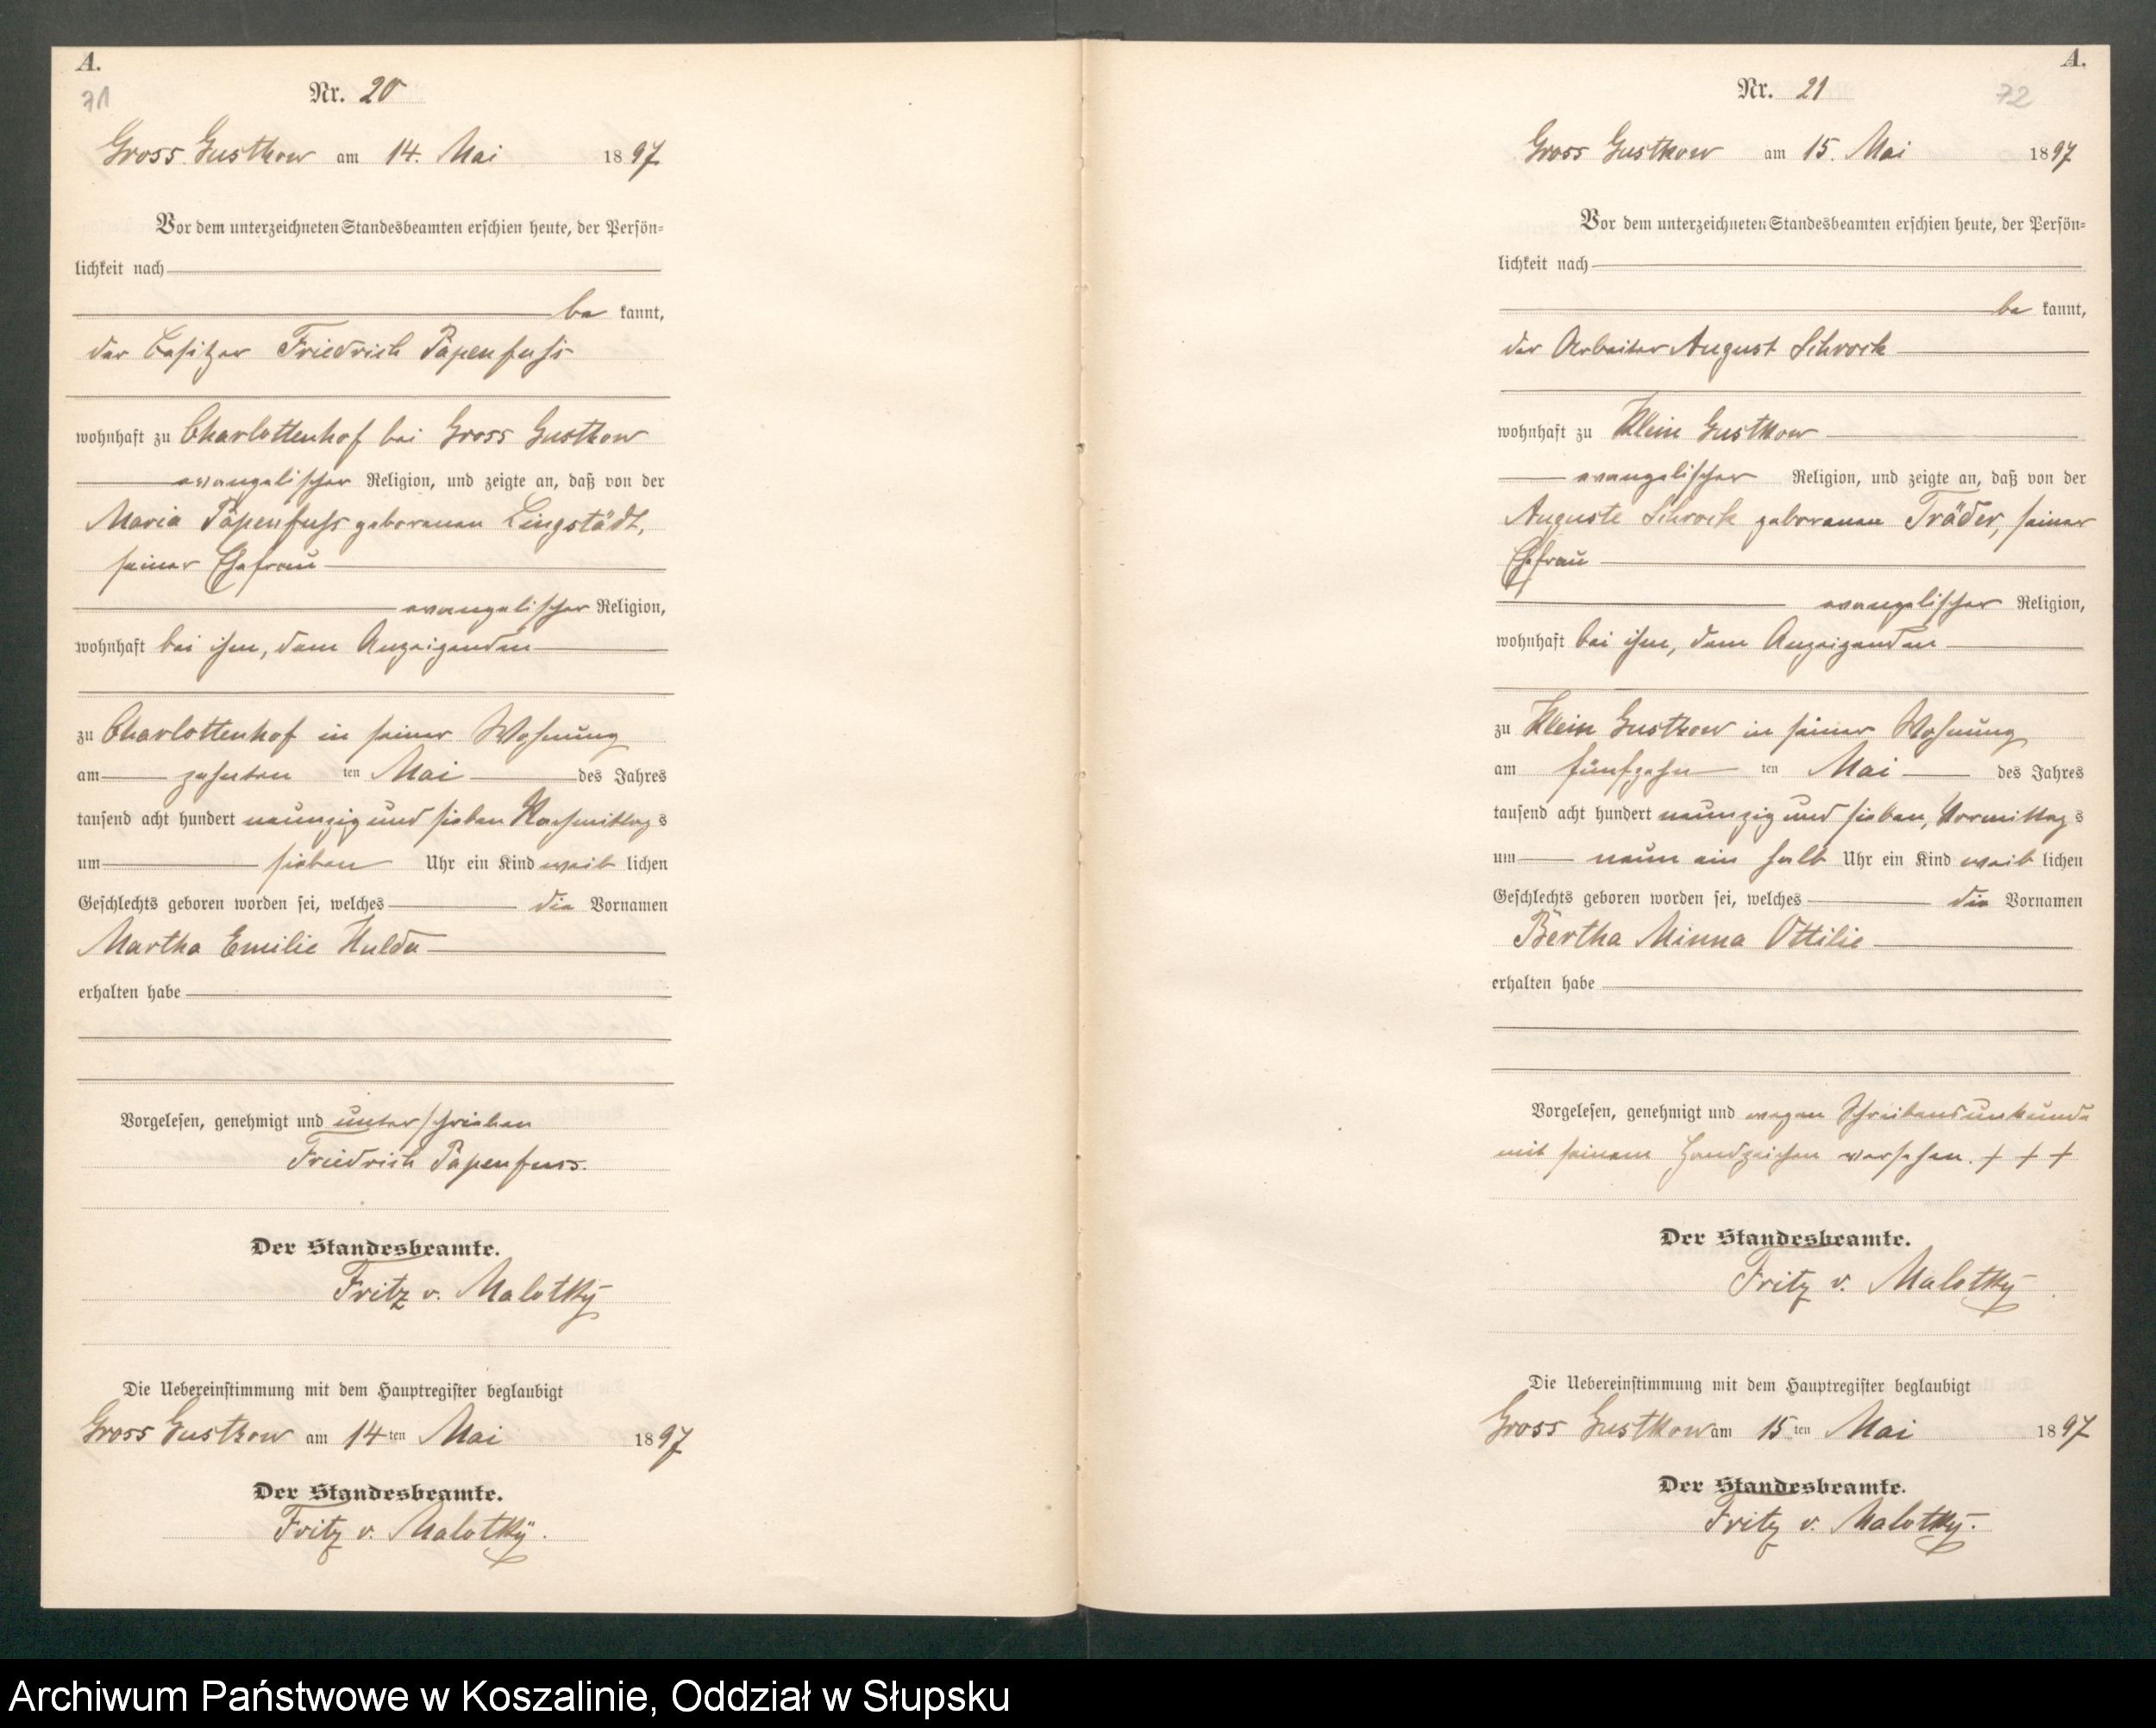 A.
71
Nr. 20
Gross Gustkow am 14. Mai 1897
Vor dem unterzeichneten Standesbeamten erschien heute, der Persön-
lichkeit nach
be kannt,
der Besitzer Friedrich Papenfuß
wohnhaft zu Charlottenhof bei Gross Gustkow
evangelischer Religion, und zeigte an, daß von der
Maria Papenfuß geborenen Lingstädt,
seiner Ehefrau
evangelischer Religion,
wohnhaft bei ihm, dem Anzeigenden
zu Charlottenhof in seiner Wohnung
am zehnten ten Mai des Jahres
tausend acht hundert neunzig und sieben Nachmittags
um sieben Uhr ein Kind weib lichen
Geschlechts geboren worden sei, welches die Vornamen
Martha Emilie Hulda
erhalten habe
Vorgelesen, genehmigt und unterschrieben
Friedrich Papenfuss.
Der Standesbeamte.
Fritz v. Malotky
Die Uebereinstimmung mit dem Hauptregister beglaubigt
Gross Gustkow am 14 ten Mai 1897
Der Standesbeamte.
Fritz v. Malotky.
A.
72
Nr. 21
Gross Gustkow am 15. Mai 1897
Vor dem unterzeichneten Standesbeamten erschien heute, der Persön-
lichkeit nach
be kannt,
der Arbeiter August Schrock
wohnhaft zu Klein Gustkow
evangelischer Religion, und zeigte an, daß von der
Auguste Schrock geborenen Träder, seiner
Ehefrau
evangelischer Religion,
wohnhaft bei ihm, dem Anzeigenden
zu Klein Gustkow in seiner Wohnung
am fünfzehn ten Mai des Jahres
tausend acht hundert neunzig und sieben, Vormittags
um neun ein halb Uhr ein Kind weib lichen
Geschlechts geboren worden sei, welches die Vornamen
Bertha Minna Ottilie
erhalten habe
Vorgelesen, genehmigt und wegen Schreibensunkunde
mit seinem Handzeichen versehen. + + +
Der Standesbeamte.
Fritz v. Malotky
Die Uebereinstimmung mit dem Hauptregister beglaubigt
Gross Gustkow am 15 ten Mai 1897
Der Standesbeamte.
Fritz v. Malotky.
Archiwum Państwowe w Koszalinie, Oddział w Słupsku